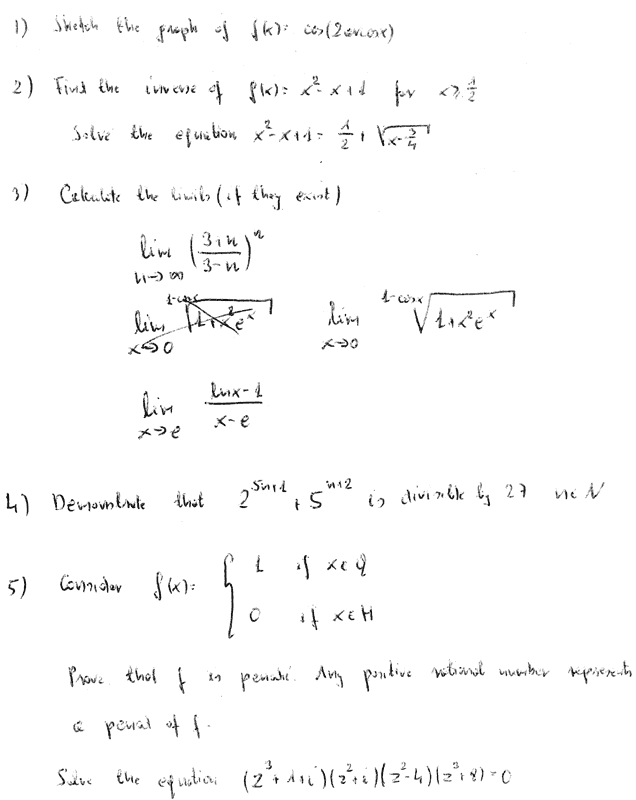 1) Sketch the graph of f(x)= cos(2arccosx)
2) Find the inverse of f(x)= x²-x+1 for x≥1/2
Solve the equation x²-x+1= 1/2 + √(x-3/4)
3) Calculate the limits (if they exist)
lim n→∞ ((3+n)/(3-n))^n
lim x→0 ^(1-cosx)√(1+x²e^x)
lim x→e (lnx-1)/(x-e)
4) Demonstrate that 2^(5n+1) + 5^(n+2) is divisible by 27 n∈N
5) Consider f(x)= { 1 if x∈Q
0 if x∈
Prove that f is Any positive rational number represents
a period of f.
Solve the equation (z³+1+i)(z²+i)(z²-4)(z³+8)=0